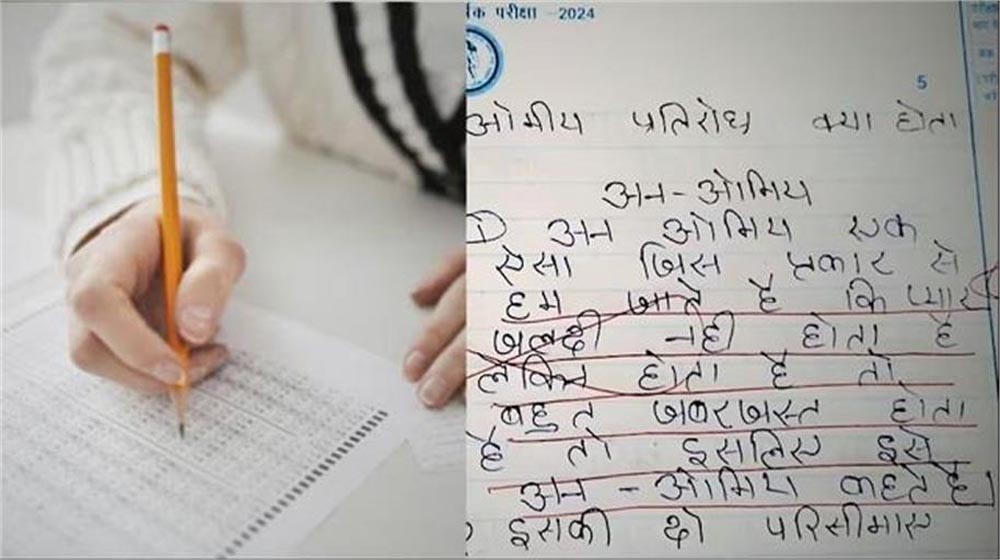 र्षिक परीक्षा -2024
5
ओमीय प्रतिरोध क्या होता
अन-ओमिय
1) अन ओमिय एक
ऐसा जिस प्रकार से
हम जाते है कि प्यार
जलदी नही होता है
लेकिन होता है तो
बहुत जबरजस्त होता
है तो इसलिए इसे
अन-ओमिय कहते है।
इसकी दो परिसीमाए